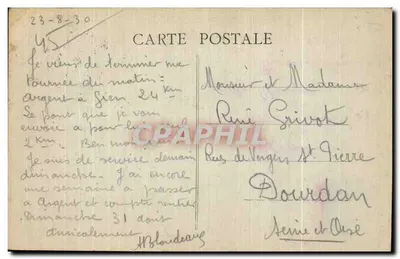 23-8-30
CARTE POSTALE
Je viens de terminer ma
tournée du matin :
Argent à Gien 24 Km
Le pont que je vous
envoie a pour
2 Km. Ben
Je suis de service demain
dimanche. J'ai encore
une semaine à passer
à Argent et compte rentrer
Dimanche 31 août
Amicalement
HBlondeau
Monsieur et Madame
René Grivot
Rue de St Pierre
Dourdan
Seine et Oise
CPARAMA